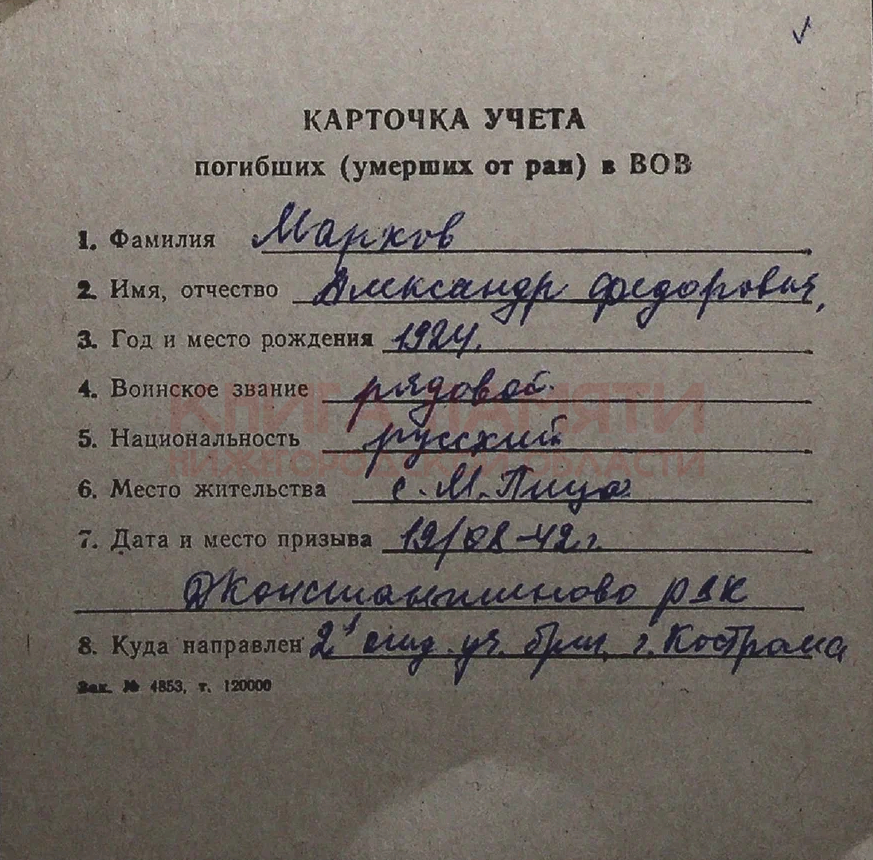 КАРТОЧКА УЧЕТА
погибших (умерших от ран) в ВОВ
1. Фамилия Марков
2. Имя, отчество Александр Федорович,
3. Год и место рождения 1924.
4. Воинское звание рядовой.
5. Национальность русский
6. Место жительства с. М. Пица
7. Дата и место призыва 19/08-42 г.
ДКонстантиново РВК
8. Куда направлен 2 уч. бриг. г. Кострома
Зак. № 4853, т. 120000
КНИГА ПАМЯТИ
НИЖЕГОРОДСКОЙ ОБЛАСТИ